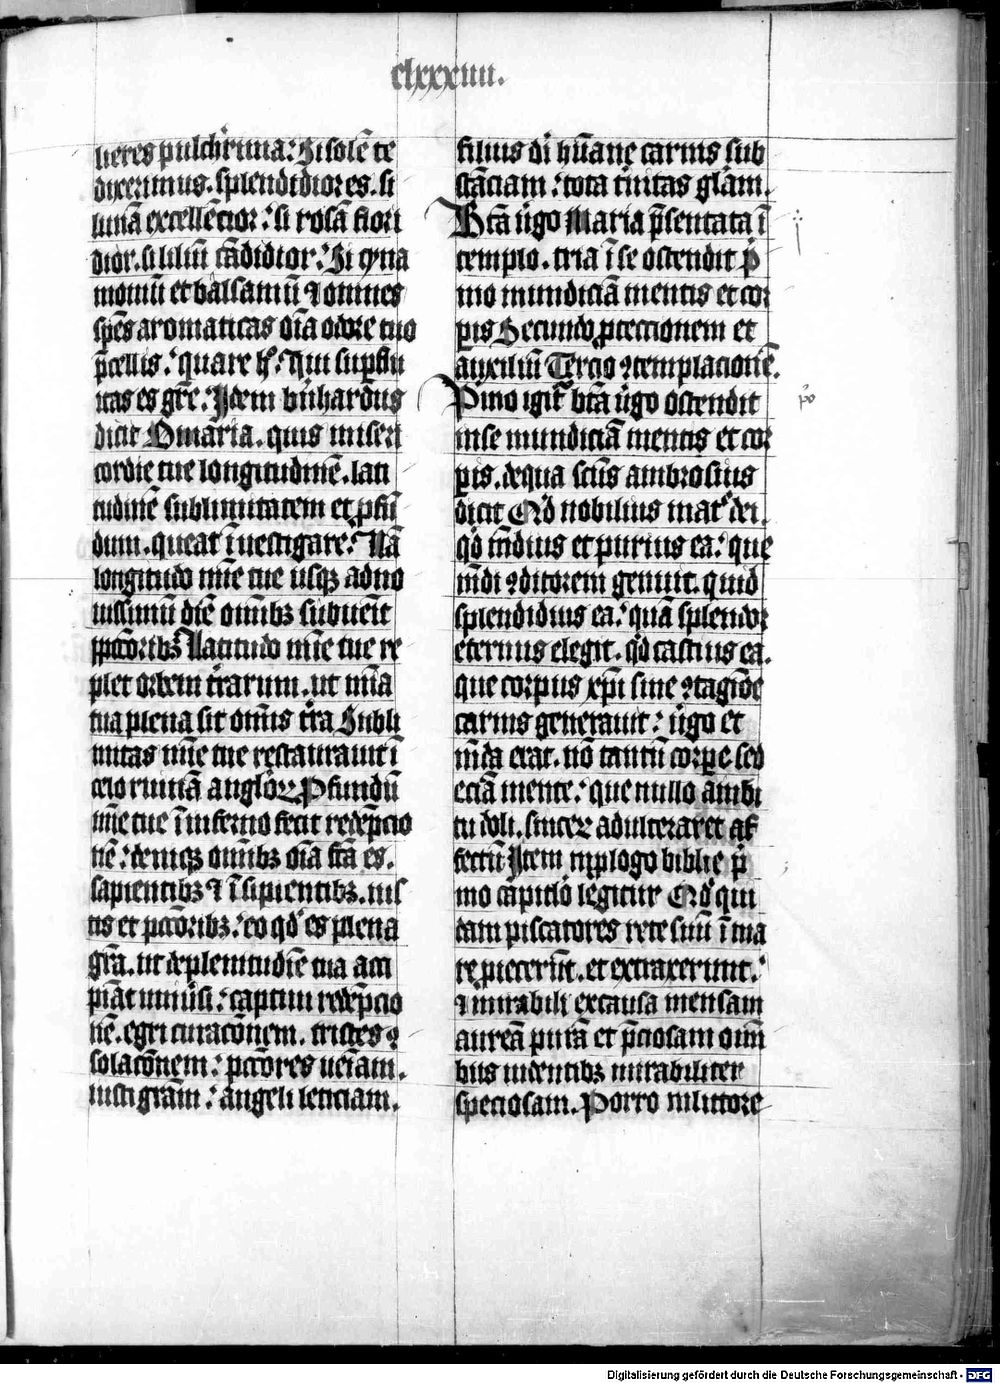 clxxxiiii.
lieres pulchrima: Si solē te
dixerimus. splendidior es. si
lunā excellēcior: si rosā flori
dior. si liliū cādidior: Si cyna
momū et balsamū ⁊ omnes
spēs aromaticas oīa odore tuo
p̄cellis: quare h̄: qui supflu
itas es gr̄e: Itē bn̄hardus
dicit O maria. quis miseri
cordie tue longitudinē. lati
tudinē sublimitatem et pfū
dum. queat īuestigare: Nā
longitudo mīe tue usqꝫ ad no
uissimū diē omībꝫ subuenit
pctōribꝫ Latitudo mīe tue re
plet orbem t̄rarum. ut mīa
tua plena sit omīs t̄ra Subli
mitas mīe tue restaurauit ī
celo ruinā angloꝝ Pfundū
mīe tue ī inferno fecit redēpcio
nē: deniqꝫ omībꝫ oīa fc̄a es.
sapientibꝫ ⁊ īsipientibꝫ. ius
tis et pctōribꝫ: eo qd es plena
grā. ut de plenitudīe tua acci
piāt uniūsi: captiui redēpcio
nē. egri curacōnem. tristes ꝯ
solacōnem: pctōres ueīam.
iusti grām: angeli leticiam.
filius dī hūane carnis sub
stāciam: tota tīnitas glām.
Btā ūgo Maria p̄sentata ī
templo. tria ī se ostendit p̄
mo mundiciā mentis et cor
pis Secundo ꝓteccionem et
auxiliū Tercio ꝯtemplacionē.
Pimo igit̄ btā ūgo ostendit
in se mundiciā mentis et cor
pis. de qua sc̄us ambrosius
dicit Qd nobilius matre dei.
qd mūdius et purius ea: que
mūdi ꝯditorem genuit. quid
splendidius ea: quā splendor
eternus elegit. qd castius ea.
que corpus xp̄i sine ꝯtagiōe
carnis generauit: ūgo et
mūda erat. nō tantū corpe sed
eciā mente: que nullo ambi
tu doli. sinceꝝ adulteraret af
fectū Item in plogo biblie p̄
mo capitulo legitur Qd qui
dam piscatores rete suū ī ma
re piecerūt. et extraxerunt:
⁊ mirabili ex causa mensam
aureā purā et p̄ciosam omī
bus uidentibꝫ mirabiliter
speciosam. Porro in littore
po
Digitalisierung gefördert durch die Deutsche Forschungsgemeinschaft - DFG